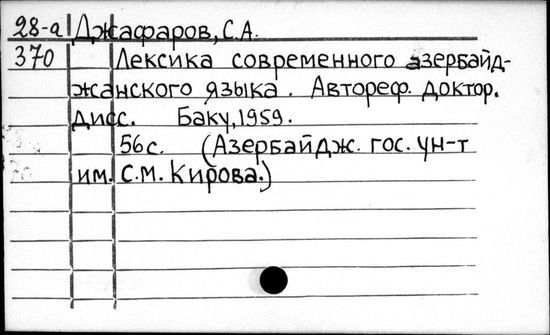 28-а Джафаров, С.А.
370 Лексика современного азербайд-
жанского языка. Автореф. доктор.
дисс. Баку, 1959.
56с. (Азербайдж. гос. ун-т
им. С.М. Кирова.)